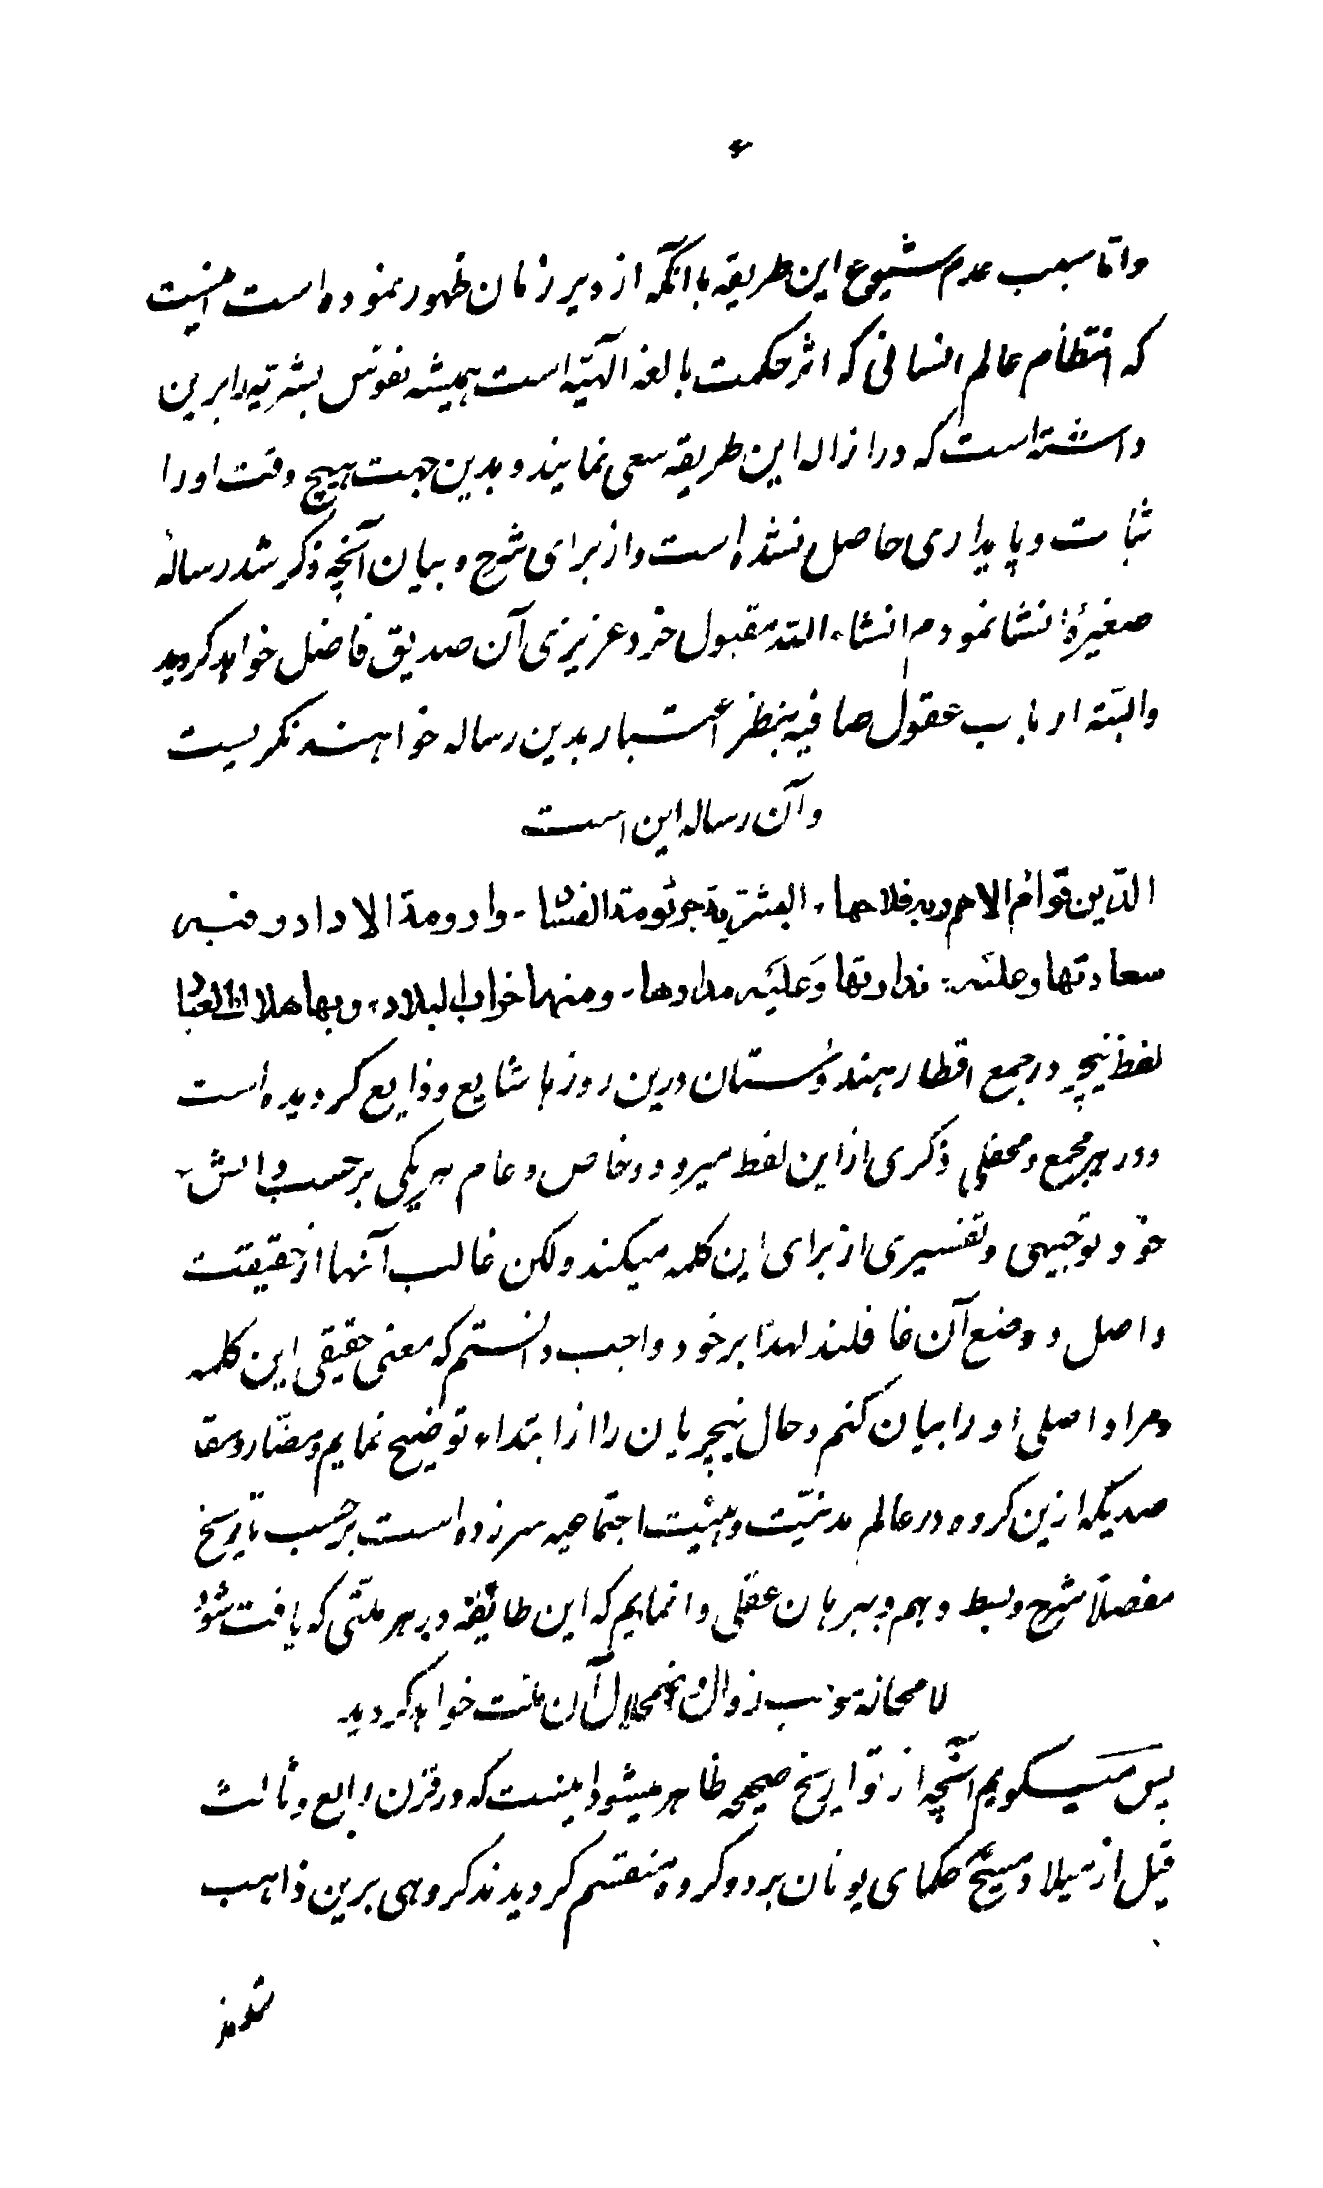 ۶
واما سبب عدم شیوع این طریقه با آنکه از دیر زمان ظهور نموده است اینست
که انتظام عالم انسانی که اثر حکمت بالغه الهیّه است همیشه نفوس بشریه را برین
داشته است که در ازاله این طریقه سعی نمایند و بدین جهت هیچ وقت او را
ثبات و پایداری حاصل نشده است و از برای شرح و بیان آنچه ذکر شد رسالهٔ
صغیرهٔ انشا نمودم انشاء الله مقبول خرد عزیزی آن صدیق فاضل خواهد کردید
والبته ارباب عقول صافیه بنظر اعتبار بدین رساله خواهند نکریست
و آن رساله این است
الدّین قوام الامم وبه فلاحها، البشریة جرثومة الفساد وارومة الاداد وفیه
سعادتها وعلیه مدارها ومنها خراب البلاد، وبها هلاک العباد
لفظ نیچر در جمع اقطار هندوستان درین روزها شایع و ذایع کردیده است
ودر هر مجمع و محفلی ذکری از این لفظ میرود و خاص و عام هر یکی بر حسب دانش
خود توجیهی و تفسیری از برای این کلمه میکند ولکن غالب آنها از حقیقت
و اصل و وضع آن غافلند لهذا بر خود واجب دانستم که معنی حقیقی این کلمه
و مراد اصلی او را بیان کنم و حال نیچریان را از ابتداء توضیح نمایم و مضار و مفا
صدیکه ازین کروه در عالم مدنیّت و هیئت اجتماعیه سرزده است بر حسب تاریخ
مفصلاً شرح و بسط دهم و ببرهان عقلی وانمایم که این طائفه در هر ملّتی که یافت شود
لا محاله موجب زوال و اضمحلال آن ملت خواهد کردید
پس میکویم آنچه از تواریخ صحیحه ظاهر میشود اینست که در قرن رابع و ثالث
قبل از میلاد مسیح حکمای یونان بر دو کروه منقسم کردیدند کروهی برین ذاهب
شدند